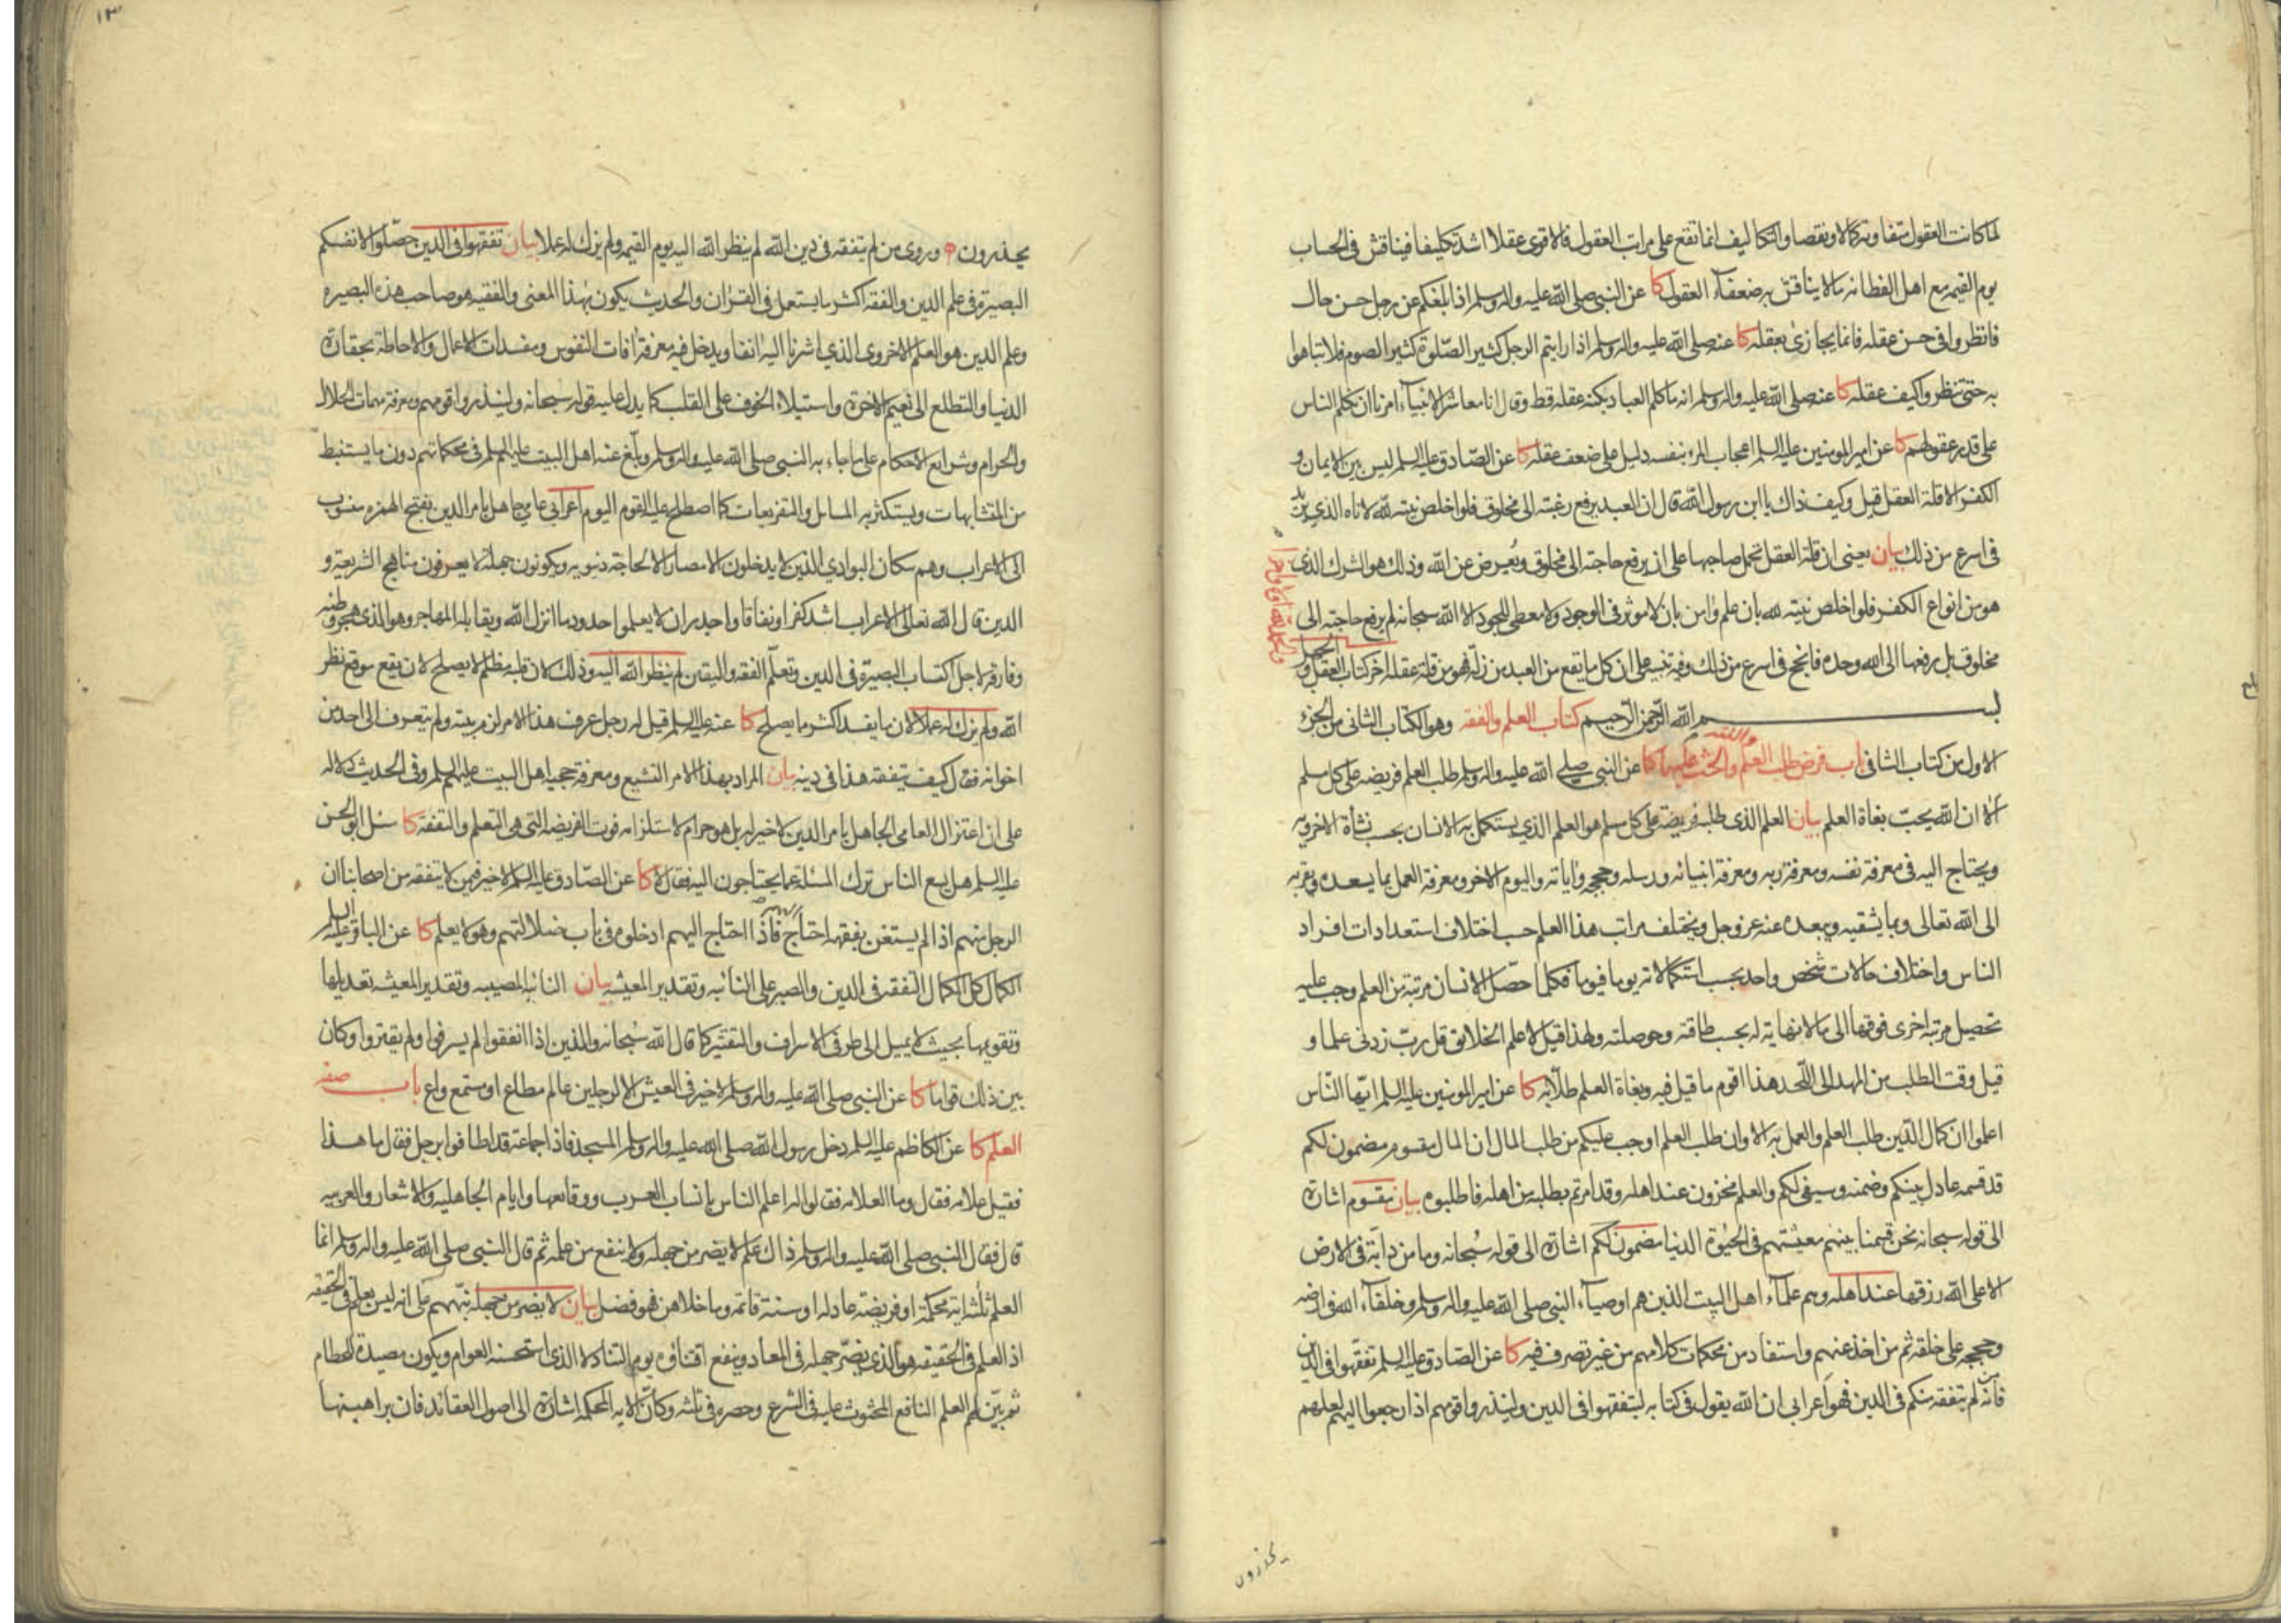 لما كانت العقول متفاوتة كمالا ونقصا والتكاليف انما تقع على مراتب العقول فالاقوى عقلا اشد تكليفا فيناقش فى الحساب
يوم القيمه مع اهل الفطانه مالا يناقش به ضعفآء العقول كا عن النبى صلى الله عليه واله وسلم اذا بلغكم عن رجل حسن حال
فانظروا فى حسن عقله فانما يجازى بعقله كا عنه صلى الله عليه واله وسلم اذا رايتم الرجل كثير الصلوة كثير الصوم فلا تباهوا
به حتى تنظروا كيف عقله كا عنه صلى الله عليه واله وسلم انه ما كلم العباد بكنه عقله قط وقال انا معاشر الانبيآء امرنا ان نكلم الناس
على قدر عقولهم كا عن امير المومنين عليه السلم اعجاب المرء بنفسه دليل على ضعف عقله كا عن الصادق عليه السلم ليس بين الايمان و
الكفر الا قلة العقل قيل وكيف ذاك يا ابن رسول الله قال ان العبد يرفع رغبته الى مخلوق فلو اخلص نيته لله لاتاه الذى يريد
فى اسرع من ذلك بيان يعنى ان قلة العقل تحمل صاحبها على ان يرفع حاجته الى مخلوق ويعرض عن الله وذلك هو الشرك الذى
هو من انواع الكفر فلو اخلص نيته لله بان علم وامن بان لا موثر فى الوجود ولا معطى للجود الا الله سبحانه لم يرفع حاجته الى
مخلوق بل يرفعها الى الله وحده فانجح فى اسرع من ذلك وفيه تنبيه على ان كل ما يقع من العبد من زلة فهو من قلة عقله اخر كتاب العقل و
الجهل
والحمد لله اولا واخرا
بسم الله الرحمن الرحيم كتاب العلم والفقه وهو الكتاب الثانى من الجزء
الاول من كتاب الشافى باب فرض طلب العلم والفقه والحث عليهما كا عن النبى صلى الله عليه واله وسلم طلب العلم فريضه على كل مسلم
الا ان الله يحب بغاة العلم بيان العلم الذى طلبه فريضة على كل مسلم هو العلم الذى يستكمل به الانسان بحسب نشأة الاخرويه
ويحتاج اليه فى معرفة نفسه ومعرفة ربه ومعرفة انبيائه ورسله وحججه واياته واليوم الاخر ومعرفة العمل بما يسعده ويقربه
الى الله تعالى وبما يشقيه ويبعده عنه عز وجل ويختلف مراتب هذا العلم حسب اختلاف استعدادات افراد
الناس واختلاف حالات شخص واحد بحسب استكمالاته يوما فيوما فكلما حصل الانسان مرتبة من العلم وجب عليه
تحصيل مرتبة اخرى فوقها الى ما لا نهاية له بحسب طاقته وحوصلته ولهذا قيل لاعلم الخلائق قل رب زدنى علما و
قيل وقت الطلب من المهد الى اللحد هذا اقوم ما قيل فيه وبغاة العلم طلابه كا عن امير المومنين عليه السلم ايها الناس
اعلموا ان كمال الدين طلب العلم والعمل به الا وان طلب العلم اوجب عليكم من طلب المال ان المال مقسوم مضمون لكم
قد قسمه عادل بينكم وضمنه وسيفى لكم والعلم مخزون عند اهله وقد امرتم بطلبه من اهله فاطلبوه بيان مقسوم اشارة
الى قوله سبحانه نحن قسمنا بينهم معيشتهم فى الحيوة الدنيا مضمون لكم اشارة الى قوله سبحانه وما من دابة فى الارض
الا على الله رزقها عند اهله وهم علمآء اهل البيت الذين هم اوصيآء النبى صلى الله عليه واله وسلم وخلفآء الله فى ارضه
وحججه على خلقه ثم من اخذ عنهم واستفاد من محكمات كلامهم من غير تصرف فيه كا عن الصادق عليه السلم تفقهوا فى الدين
فانه من لم يتفقه منكم فى الدين فهو اعرابى ان الله يقول فى كتابه ليتفقهوا فى الدين ولينذروا قومهم اذا رجعوا اليهم لعلهم
يحذرون
١٣
يحذرون وروى من لم يتفقه فى دين الله لم ينظر الله اليه يوم القيمه ولم يزك له عملا بيان تفقهوا فى الدين حصلوا لانفسكم
البصيرة فى علم الدين والفقه اكثر ما يستعمل فى القران والحديث يكون بهذا المعنى والفقيه هو صاحب هذه البصيره
وعلم الدين هو العلم الاخروى الذى اشرنا اليه انفا ويدخل فيه معرفة افات النفوس ومفسدات الاعمال والاحاطة بحقارة
الدنيا والتطلع الى نعيم الاخرة واستيلاء الخوف على القلب كما يدل عليه قوله سبحانه ولينذروا قومهم ومعرفة مهمات الحلال
والحرام وشرايع الاحكام على ما جاء به النبى صلى الله عليه واله وسلم وبلغ عنه اهل البيت عليهم السلم فى محكماتهم دون ما يستنبط
من المتشابهات ويستكثر به المسائل والتفريعات كما اصطلح عليه القوم اليوم اعرابى عامى جاهل بامر الدين بفتح الهمزه منسوب
الى الاعراب وهم سكان البوادى الذين لا يدخلون الامصار الا لحاجة دنيويه ويكونون جهلة لا يعرفون مناهج الشريعة و
الدين قال الله تعالى الاعراب اشد كفرا ونفاقا واجدر ان لا يعلموا حدود ما انزل الله ويقابله المهاجر وهو الذى هجر وطنه
وفارقه لاجل اكتساب البصيرة فى الدين وتعلم الفقه واليقين لم ينظر الله اليه وذلك لان قلبه مظلم لا يصلح لان يقع موقع نظر
الله ولم يزك له عملا لان ما يفسد اكثر مما يصلح كا عنه عليه السلم قيل له رجل عرف هذا الامر لزم بيته ولم يتعرف الى احد من
اخوانه فقال كيف يتفقه هذا فى دينه بيان المراد بهذا الامر التشيع ومعرفة حجية اهل البيت عليهم السلم وفى الحديث دلاله
على ان اعتزال العامى الجاهل بامر الدين لا خير له بل هو حرام لاستلزامه فوت الفريضه التى هى التعلم والتفقه كا سئل ابو الحسن
عليه السلم هل يسع الناس ترك المسئلة عما يحتاجون اليه فقال لا كا عن الصادق عليه السلم لا خير فيمن لا يتفقه من اصحابنا ان
الرجل منهم اذا لم يستغن بفقهه احتاج اليهم فاذا احتاج اليهم ادخلوه فى باب ضلالتهم وهو لا يعلم كا عن الباقر عليه السلم
الكمال كل الكمال التفقه فى الدين والصبر على النائبه وتقدير المعيشه بيان النائبه المصيبه وتقدير المعيشه تعديلها
وتقويمها بحيث لا يميل الى طرفى الاسراف والتقتير كما قال الله سبحانه والذين اذا انفقوا لم يسرفوا ولم يقتروا وكان
بين ذلك قواما كا عن النبى صلى الله عليه واله وسلم لا خير فى العيش الا لرجلين عالم مطاع او مستمع واع باب صفه
العلم كا عن الكاظم عليه السلم دخل رسول الله صلى الله عليه واله وسلم المسجد فاذا جماعة قد اطافوا برجل فقال ما هذا
فقيل علامه فقال وما العلامه فقالوا له اعلم الناس بانساب العرب ووقائعها وايام الجاهليه والاشعار والعربيه
قال فقال النبى صلى الله عليه واله وسلم ذاك علم لا يضر من جهله ولا ينفع من علمه ثم قال النبى صلى الله عليه واله وسلم انما
العلم ثلثه اية محكمة او فريضة عادله او سنة قائمه وما خلاهن فهو فضل بيان لا يضر من جهله نبههم على انه ليس بعلم فى الحقيقه
اذ العلم فى الحقيقه هو الذى يضر جهله فى المعاد وينفع اقتناؤه يوم التناد لا الذى استحسنه العوام ويكون مصيدة للحطام
ثم بين لهم العلم النافع المحثوث عليه فى الشرع وحصره فى ثلثه وكان الايه المحكمه اشارة الى اصول العقائد فان براهينها